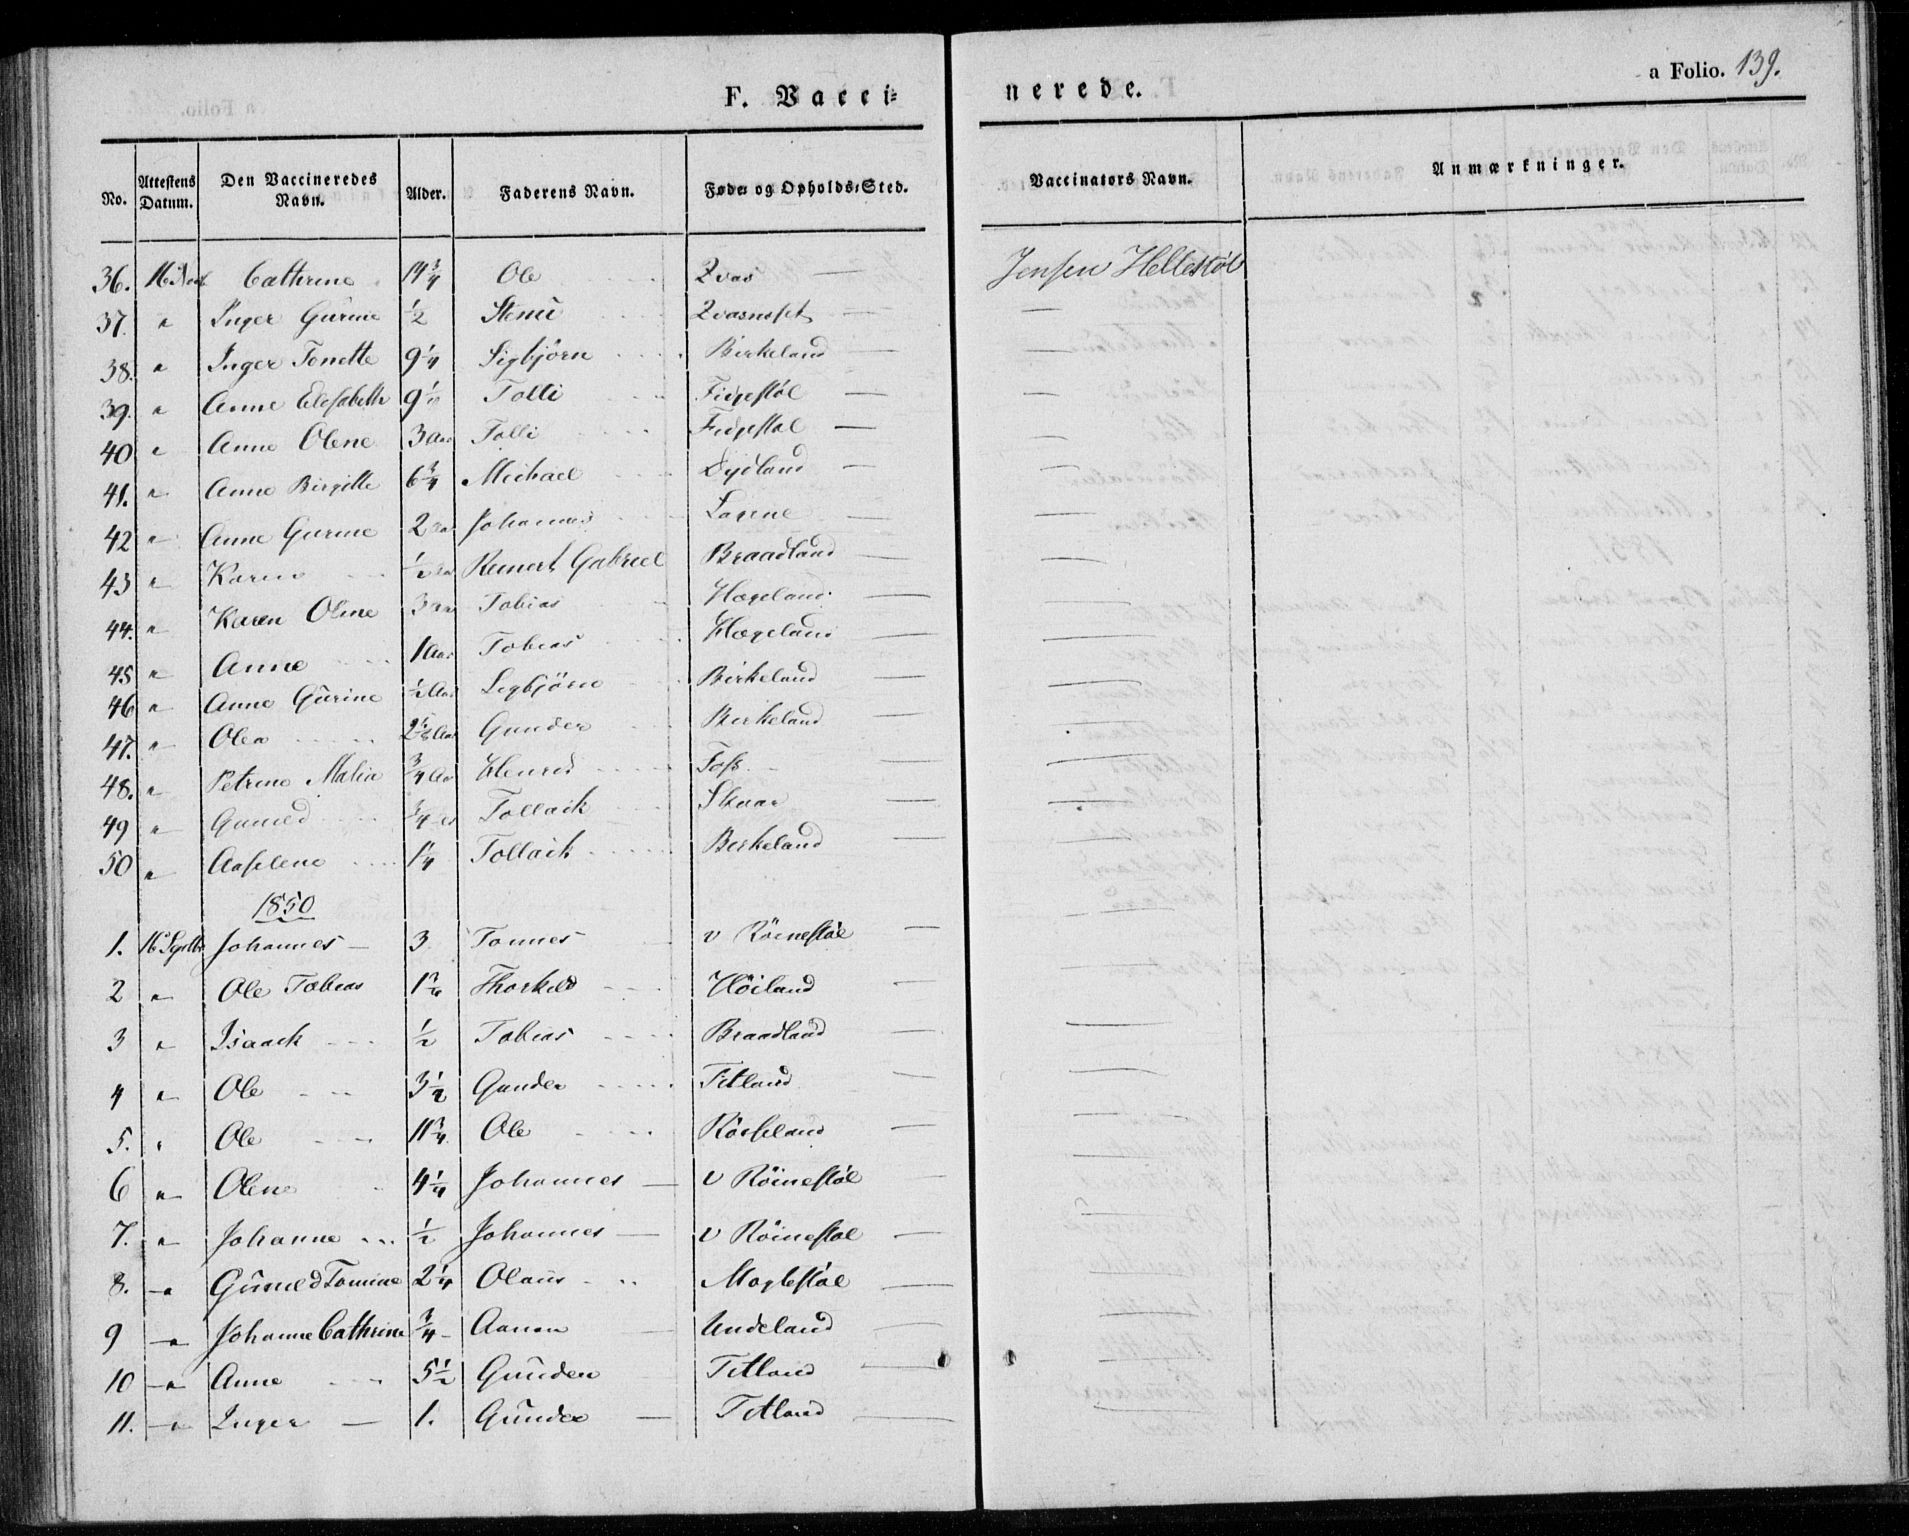 a Folio. 139.
F. Vacci= nerede.
No. Attestens Datum. Den Vaccineredes Navn. Alder. Faderens Navn. Føde- og Opholds-Sted. Vaccinators Navn. Anmærkninger.
36. 16 Novb Cathrine 14 3/4 Ole Qvas — Jensen Hellestøl
37. " Inger Gurine 1/2 Steni — —
38. " Inger Tonette 9 1/4 Sigbjörn Birkeland — —
39. " Anne Elisabeth 9 1/2 Tolli Fidjestøl — —
40 " Anne Olene 3 Aar Tolli Fidjestøl — —
41. " Anne Birgitte 6 3/4 Michael Dydland — —
42 " Anne Gurine 2 Aar Johannes — —
43 " Karen 1/2 Aar Reinert Gabriel Braadland — —
44. " Karen Oline 3 Aar Tobias Hægeland — —
45 " Anne 1 Aar Tobias Hægeland — —
46 " Anne Gürine 1/2 Aar Sigbjörn Birkeland — —
47. " Olea Gunder Birkeland — —
48. " Petrine Malia 3/4 Aar Foss —
49 " Guneld 3/4 Tollack Skaar — —
50 " Aaselene 1 1/4 Tollack Birkeland — —
1850
1. 16 Septbr Johannes — 3 Tonnes v Röinestøl — —
2 " Ole Tobias 1 3/4 Thorkild Höiland — —
3 " Isaack 1/2 Tobias Braadland — —
4 " Ole 3 1/2 Gunder Titland — —
5. " Ole 11 3/4 Ole Röiseland — —
6 " Olene 4 1/4 Johannes — v Röinestøl — —
7. " Johanne 1/2 Johannes — v Röinestøl — —
8. " Güneld Tomine 2 1/4 Olaüs Moglestøl — —
9 " Johanne Cathrine 3/4 Aanen Undeland — —
10 " Anne 5 1/2 Günder Titland — —
11. " Inger — 1. Günder — Titland — —